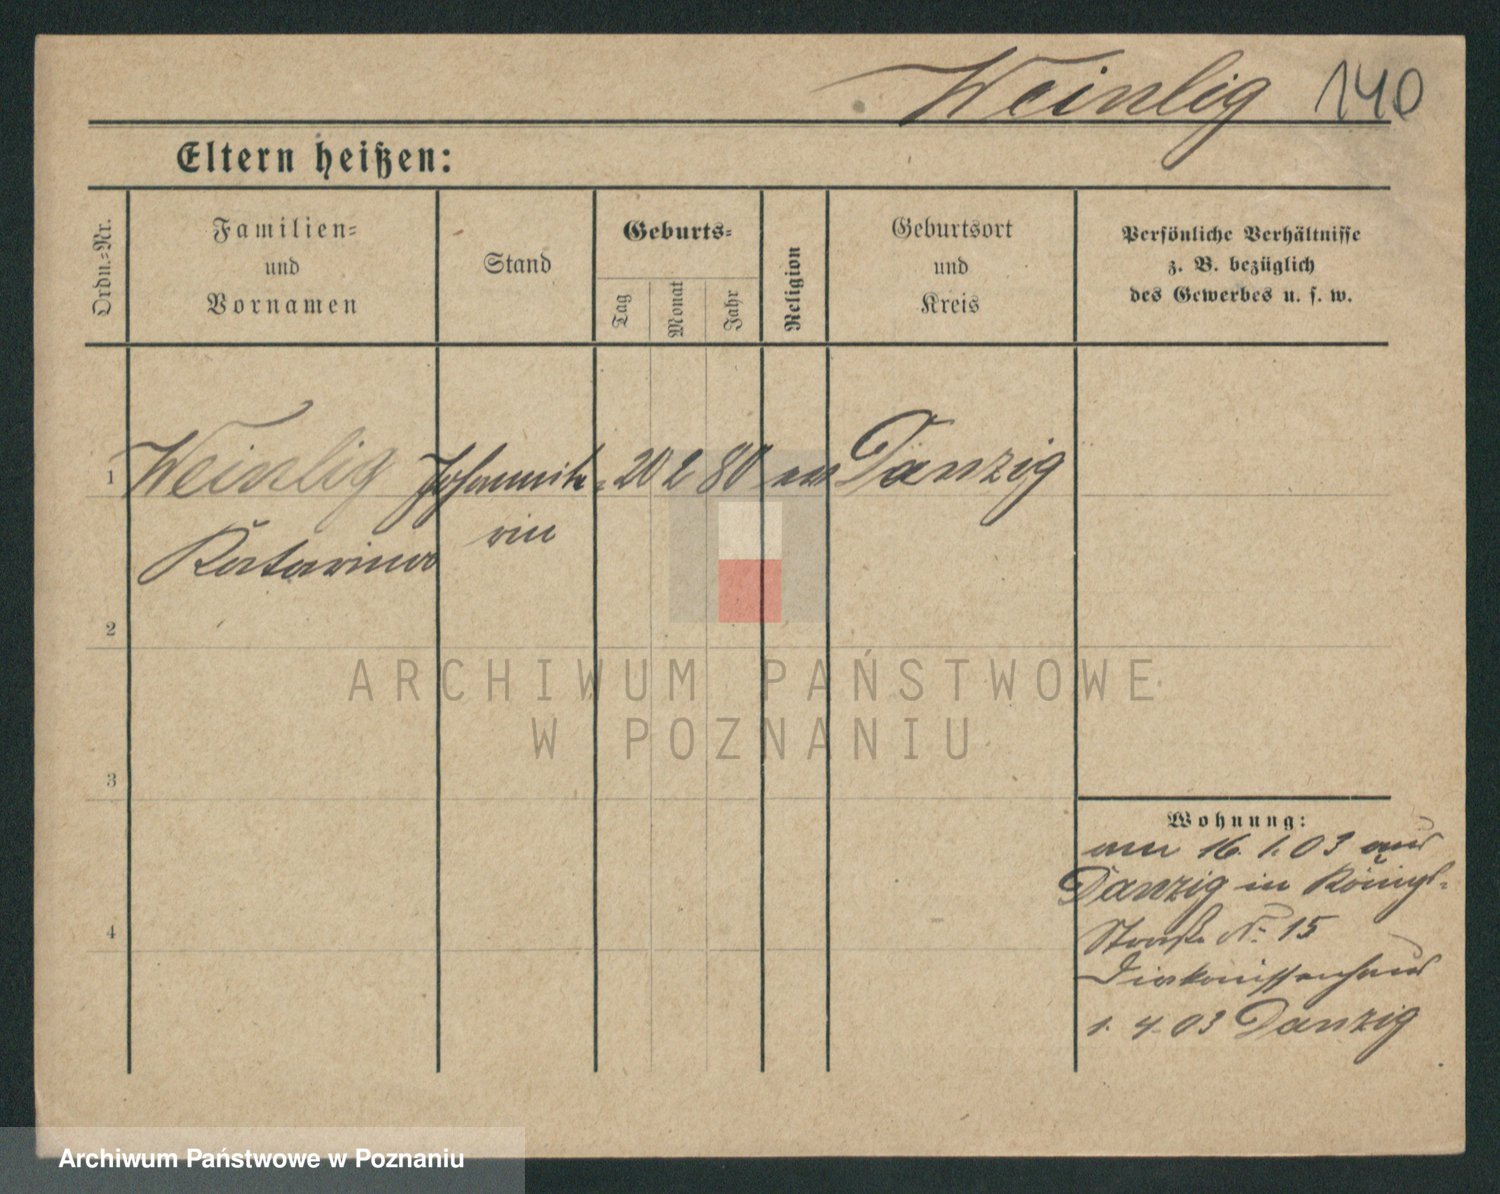 Weinlig 140
Eltern heißen:
Ordn.-Nr.
Familien-
und
Vornamen
Stand
Geburts-
Tag
Monat
Jahr
Religion
Geburtsort
und
Kreis
Persönliche Verhältnisse
z. B. bezüglich
des Gewerbes u. s. w.
1 Weinlig Johannite- 20 2 80 ev Danzig
Katarina rin
2
ARCHIWUM PAŃSTWOWE
W POZNANIU
3
Wohnung:
am 16. 1. 03 aus
Danzig in Königs-
Straße N: 15
Diakonissenhaus
4
1. 4. 03 Danzig
Archiwum Państwowe w Poznaniu